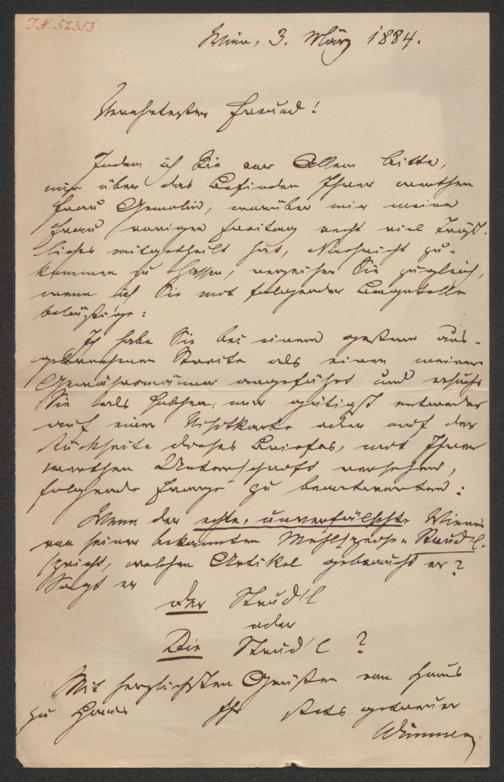 J.N. 52353
Wien, 3. März 1884.
Verehrtester Freund!
Indem ich Sie vor Allem bitte,
mir über das Befinden Ihrer werthen
Frau Gemalin, worüber mir meine
Frau vorigen Freitag recht viel Tröst-
liches mitgetheilt hat, Nachricht zu-
kommen zu lassen, verzeihen Sie zugleich,
wenn ich Sie mit folgender Bagatelle
belästige:
Ich habe Sie bei einem gestern aus-
gebrochenen Streite als einen meiner
Gewährsmänner angeführt und ersuche
Sie als solchen, mir gütigst entweder
auf einer Visitkarte oder auf der
Rückseite dieses Briefes, mit Ihrer
werthen Unterschrift versehen,
folgende Frage zu beantworten:
Wenn der echte, unverfälschte Wiener
von seiner bekannten Mehlspeise „Strud'l"
spricht, welchen Artikel gebraucht er?
Sagt er
der Strud'l
oder
Die Strud'l ?
Mit herzlichsten Grüßen von Haus
zu Haus Ihr stets getreuer